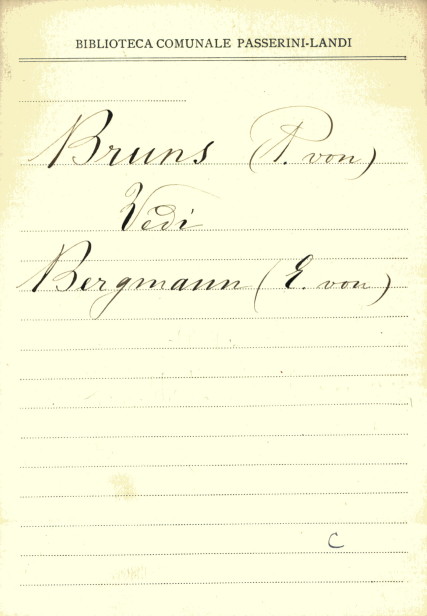 BIBLIOTECA COMUNALE PASSERINI-LANDI
Bruns (P. von)
Vedi
Bergmann (E. von)
C